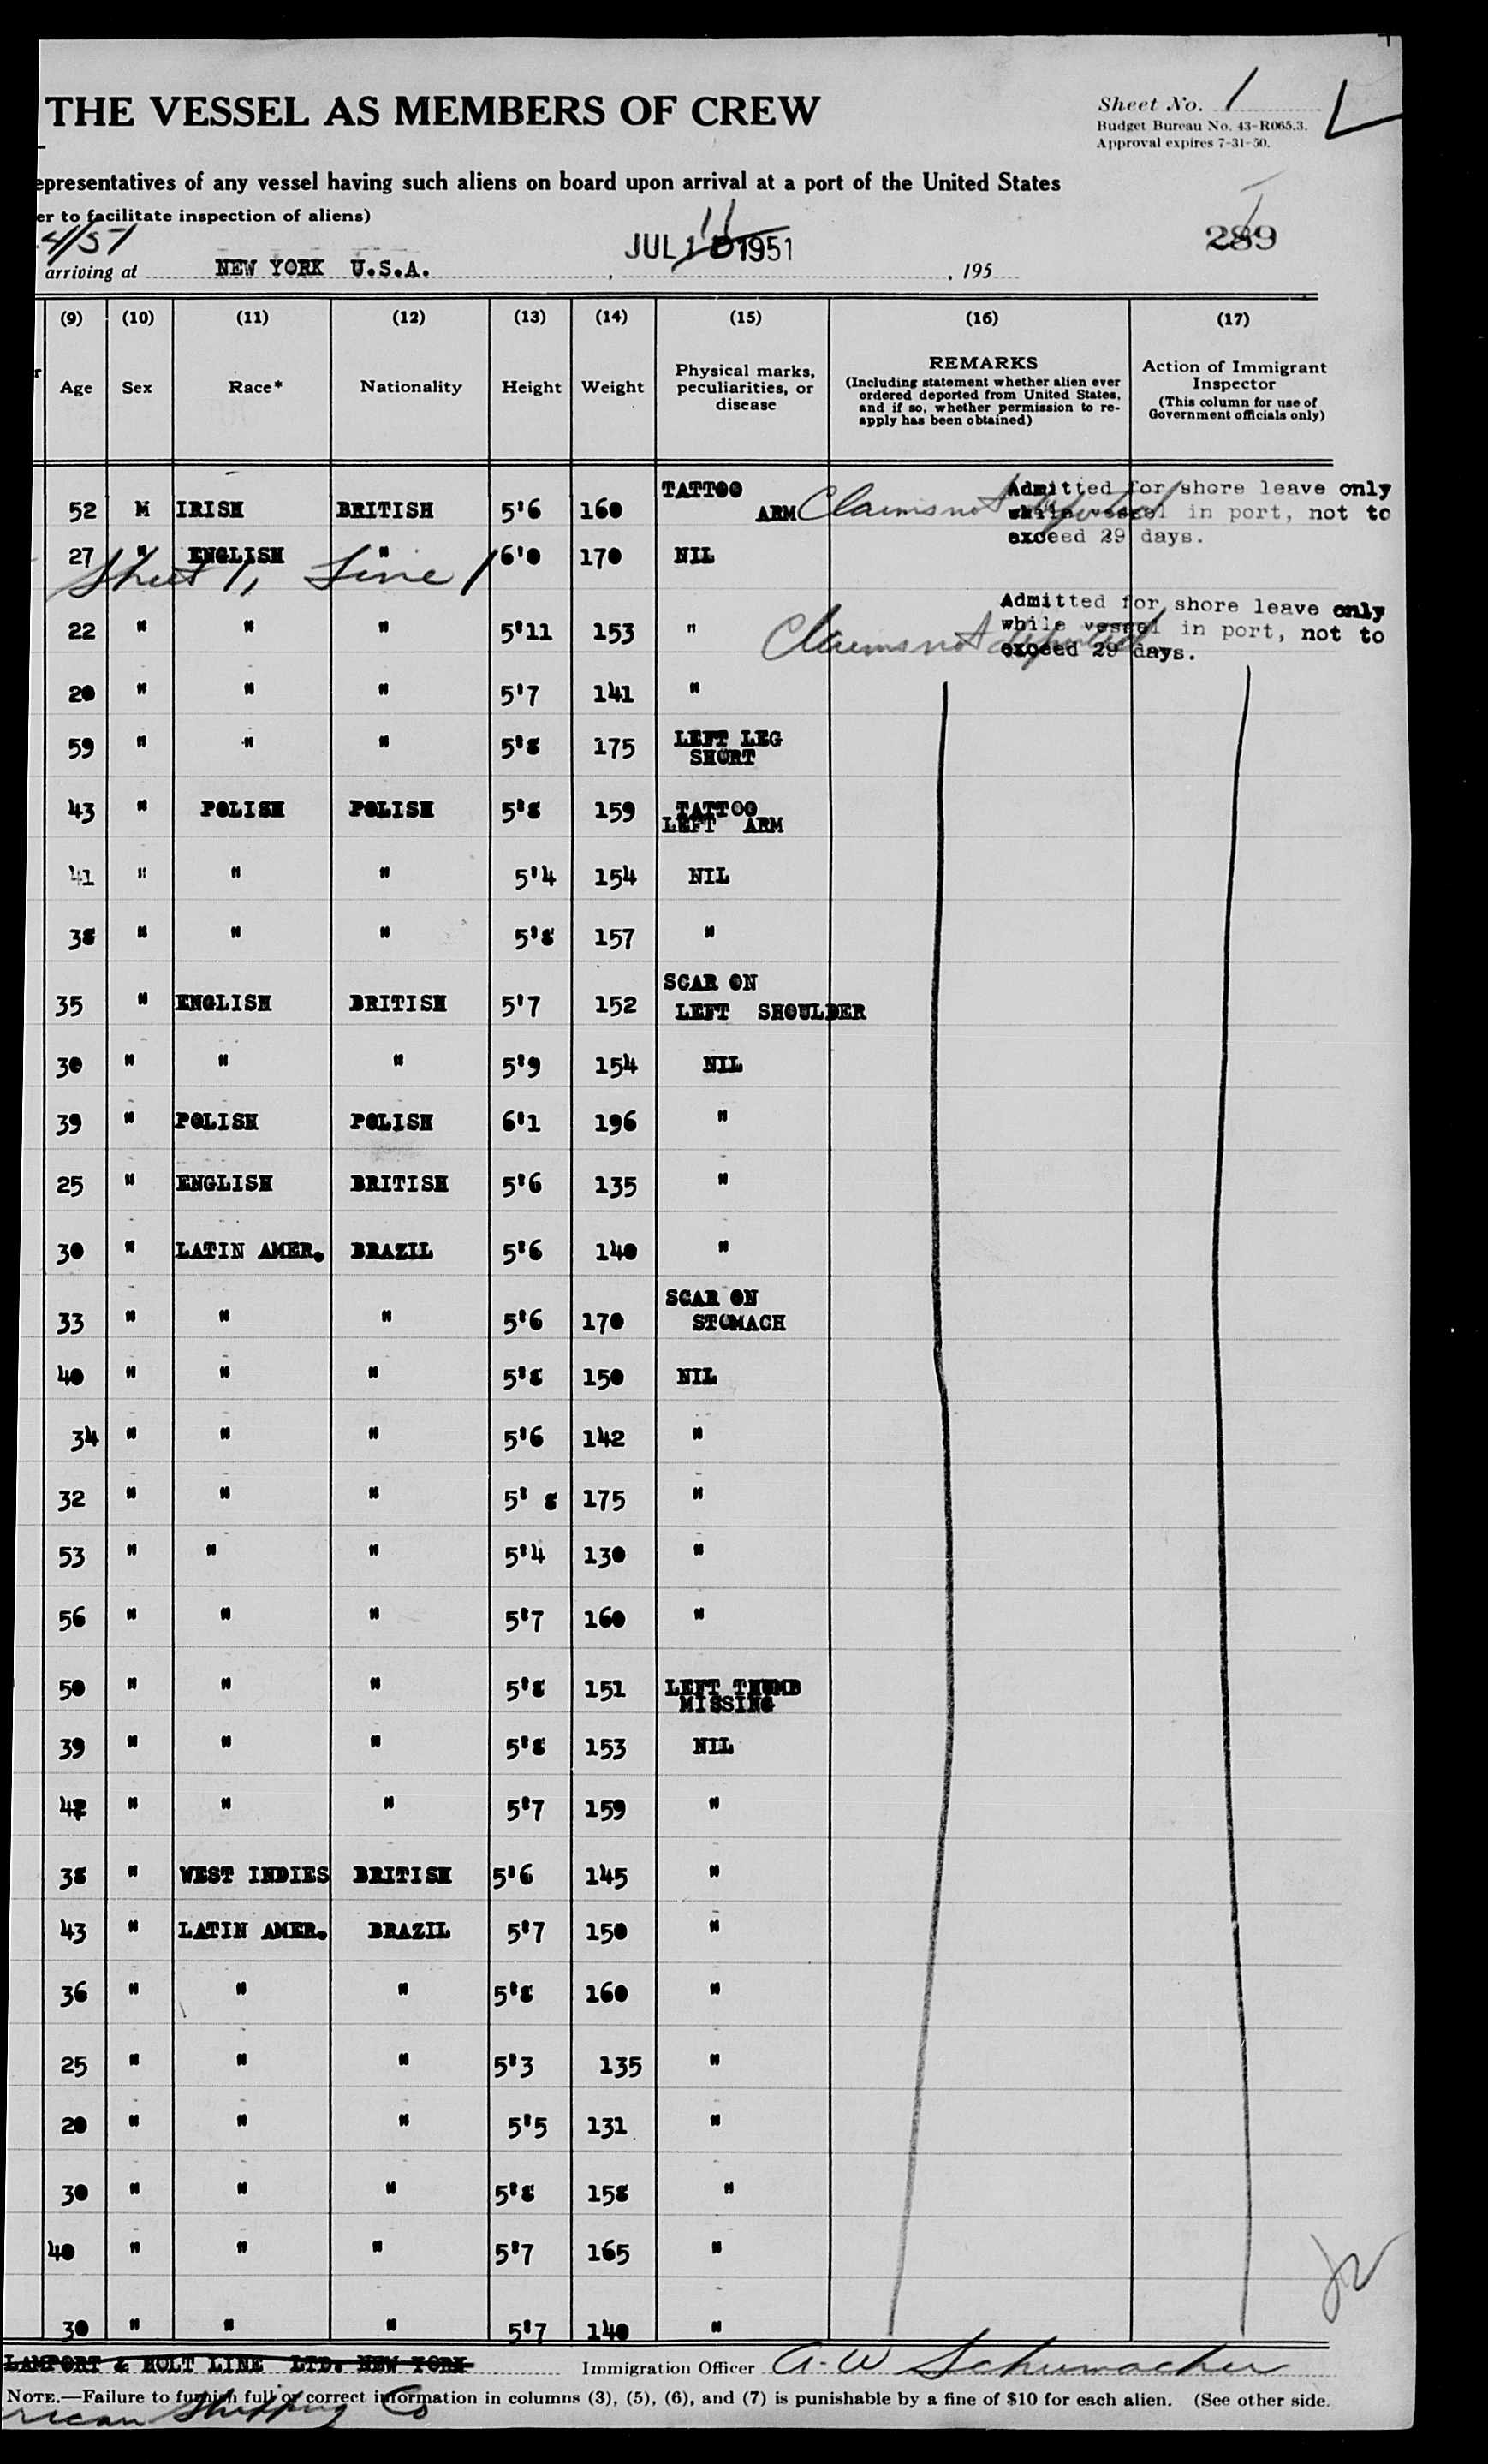 THE VESSEL AS MEMBERS OF CREW
Sheet No. 1
Budget Bureau No. 43-R065.3.
Approval expires 7-31-50.
epresentatives of any vessel having such aliens on board upon arrival at a port of the United States
er to facilitate inspection of aliens)
4/51
289
arriving at NEW YORK U.S.A. , JUL 10 1951 11 , 195
(9) (10) (11) (12) (13) (14) (15) (16) (17)
Age Sex Race* Nationality Height Weight Physical marks, peculiarities, or disease REMARKS (Including statement whether alien ever ordered deported from United States, and if so, whether permission to re-apply has been obtained) Action of Immigrant Inspector (This column for use of Government officials only)
52 M IRISH BRITISH 5'6 160 TATTOO ARM Claims not deported Admitted for shore leave only while vessel in port, not to exceed 29 days.
27 " ENGLISH " 6'0 170 NIL
Sheet 1, Line 1
22 " " " 5'11 153 " Claims not deported Admitted for shore leave only while vessel in port, not to exceed 29 days.
20 " " " 5'7 141 "
59 " " " 5'8 175 LEFT LEG SHORT
43 " POLISH POLISH 5'8 159 TATTOO LEFT ARM
41 " " " 5'4 154 NIL
38 " " " 5'8 157 "
35 " ENGLISH BRITISH 5'7 152 SCAR ON LEFT SHOULDER
30 " " " 5'9 154 NIL
39 " POLISH POLISH 6'1 196 "
25 " ENGLISH BRITISH 5'6 135 "
30 " LATIN AMER. BRAZIL 5'6 140 "
33 " " " 5'6 170 SCAR ON STOMACH
40 " " " 5'8 150 NIL
34 " " " 5'6 142 "
32 " " " 5' 8 175 "
53 " " " 5'4 130 "
56 " " " 5'7 160 "
50 " " " 5'8 151 LEFT THUMB MISSING
39 " " " 5'8 153 NIL
" " " 5'7 159 "
38 " WEST INDIES BRITISH 5'6 145 "
43 " LATIN AMER. BRAZIL 5'7 150 "
36 " " " 5'8 160 "
25 " " " 5'3 135 "
20 " " " 5'5 131 "
30 " " " 5'8 158 "
40 " " " 5'7 165 "
30 " " " 5'7 140 "
LAMPORT & HOLT LINE LTD. NEW YORK Immigration Officer A. W Schumacher
NOTE.—Failure to furnish full or correct information in columns (3), (5), (6), and (7) is punishable by a fine of $10 for each alien. (See other side.
rican Shipping Co